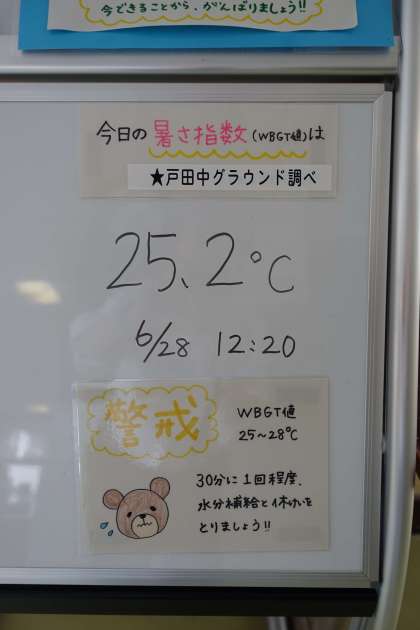 今できることから、がんばりましょう!!
今日の暑さ指数(WBGT値)は
★戸田中グラウンド調べ
25.2℃
6/28 12:20
警戒
WBGT値
25~28℃
30分に1回程度、
水分補給と休けいを
とりましょう!!